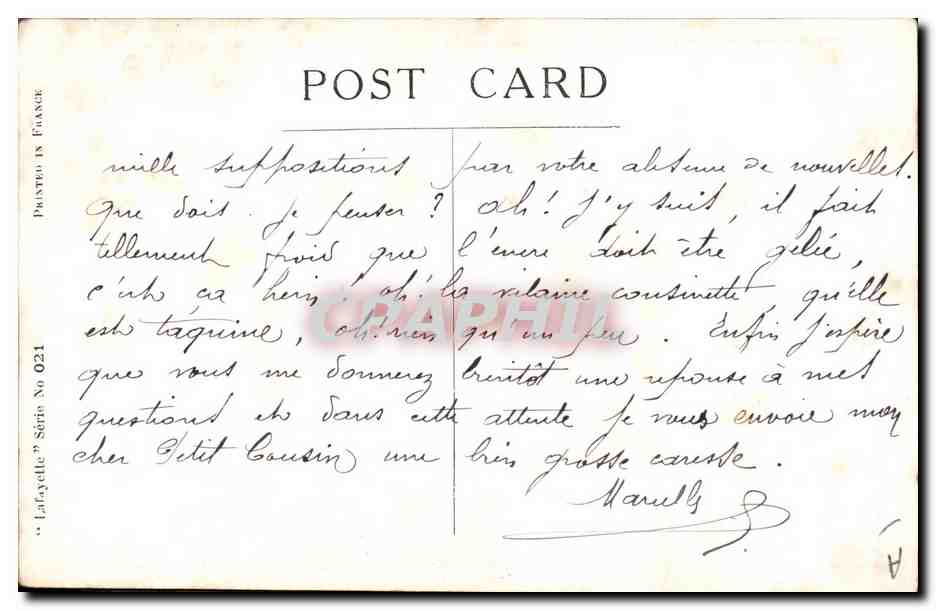 POST CARD
mille suppositions par votre absence de nouvelles.
Que dois je penser ? ah! j'y suis, il fait
tellement froid que l'encre doit être gelée,
c'est ça hein! oh! la vilaine cousinette, qu'elle
est taquine, oh! rien qu'un peu. Enfin j'espère
que vous me donnerez bientôt une réponse à mes
questions et dans cette attente je vous envoie mon
cher Petit Cousin une bien grosse caresse.
Marcelle
PRINTED IN FRANCE
"Lafayette" Série No 021
CPAPHIL
A